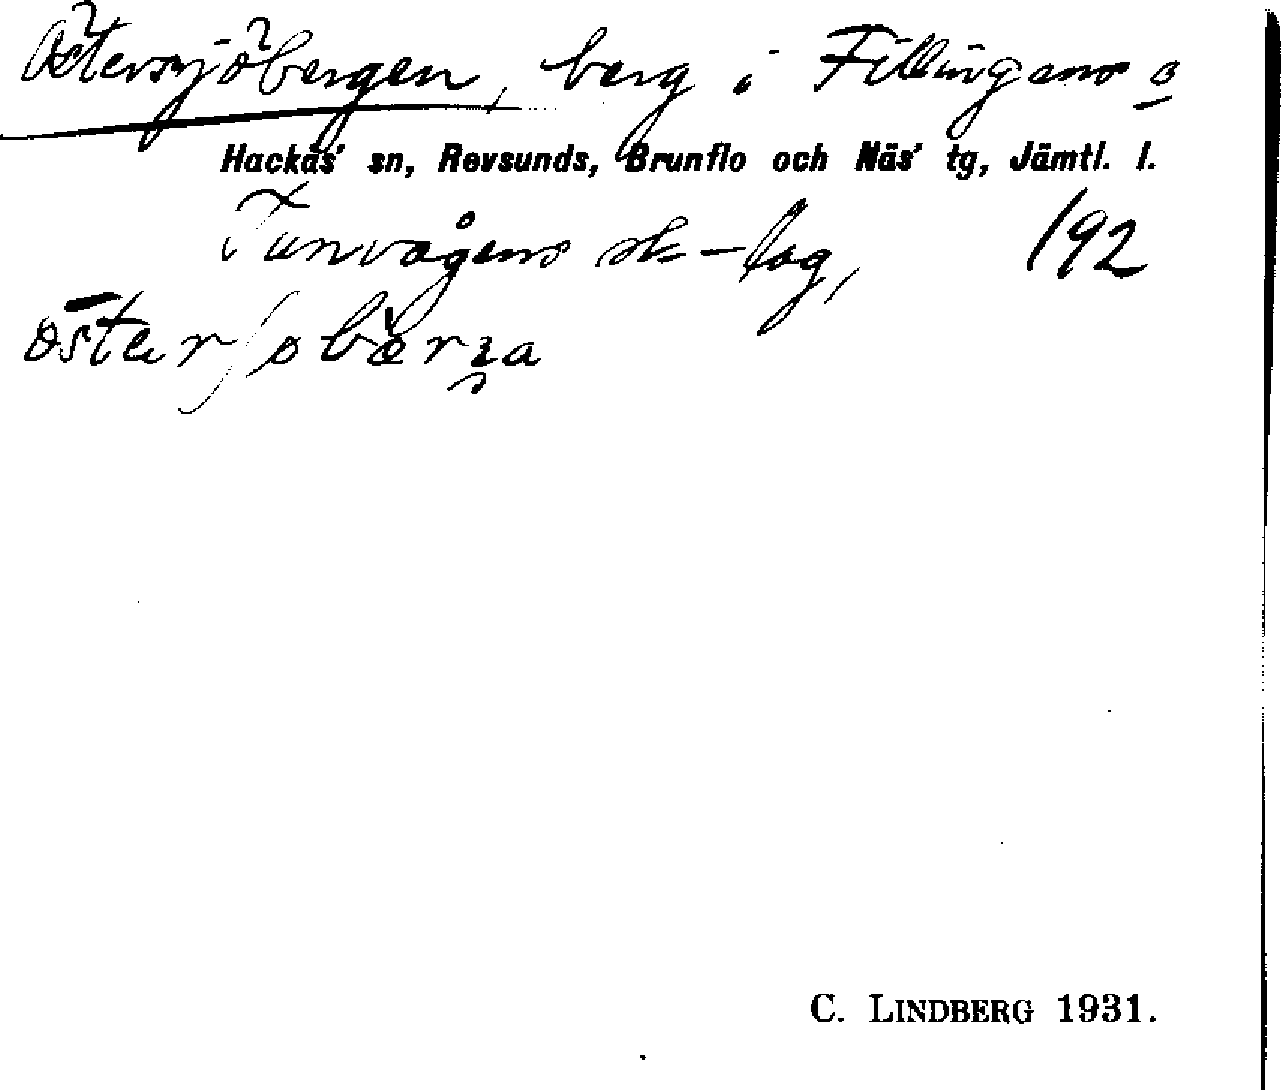 Östersjöbergen, berg i Fillingens o
Hackås' sn, Revsunds, Brunflo och Näs' tg, Jämtl. l.
Tunvågens sk-lag, 192
C. LINDBERG 1931.